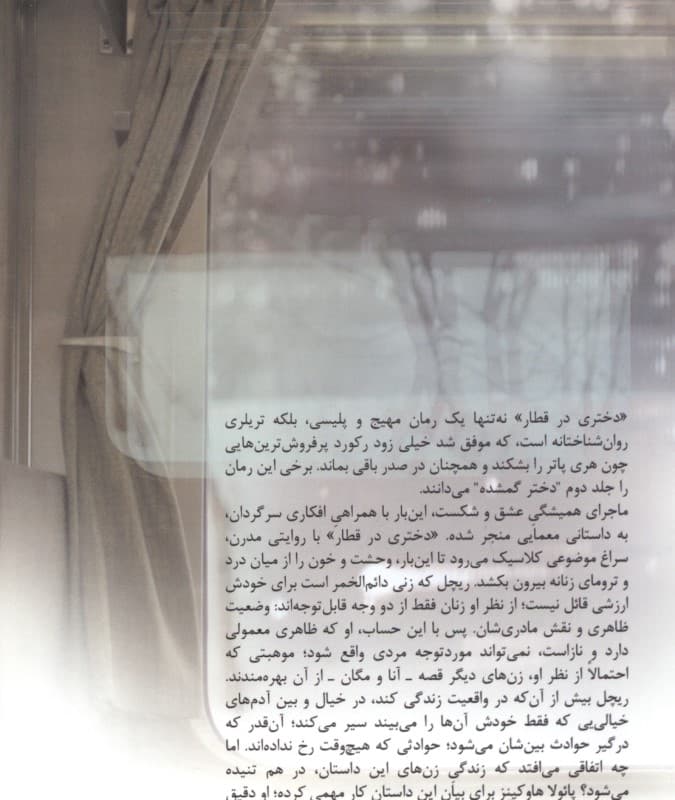 «دختری در قطار» نه‌تنها یک رمان مهیج و پلیسی، بلکه تریلری
روان‌شناختانه است، که موفق شد خیلی زود رکورد پرفروش‌ترین‌هایی
چون هری پاتر را بشکند و همچنان در صدر باقی بماند. برخی این رمان
را جلد دوم "دختر گمشده" می‌دانند.
ماجرای همیشگیِ عشق و شکست، این‌بار با همراهیِ افکاری سرگردان،
به داستانی معمایی منجر شده. «دختری در قطار» با روایتی مدرن،
سراغ موضوعی کلاسیک می‌رود تا این‌بار، وحشت و خون را از میان درد
و ترومای زنانه بیرون بکشد. ریچل که زنی دائم‌الخمر است برای خودش
ارزشی قائل نیست؛ از نظر او زنان فقط از دو وجه قابل‌توجه‌اند: وضعیت
ظاهری و نقش مادری‌شان. پس با این حساب، او که ظاهری معمولی
دارد و نازاست، نمی‌تواند موردتوجه مردی واقع شود؛ موهبتی که
احتمالاً از نظر او، زن‌های دیگر قصه ـ آنا و مگان ـ از آن بهره‌مندند.
ریچل بیش از آن‌که در واقعیت زندگی کند، در خیال و بین آدم‌های
خیالی‌یی که فقط خودش آن‌ها را می‌بیند سیر می‌کند؛ آن‌قدر که
درگیر حوادث بین‌شان می‌شود؛ حوادثی که هیچ‌وقت رخ نداده‌اند. اما
چه اتفاقی می‌افتد که زندگیِ زن‌های این داستان، در هم تنیده
می‌شود؟ پائولا هاوکینز برای بیان این داستان کار مهمی کرده؛ او دقیق